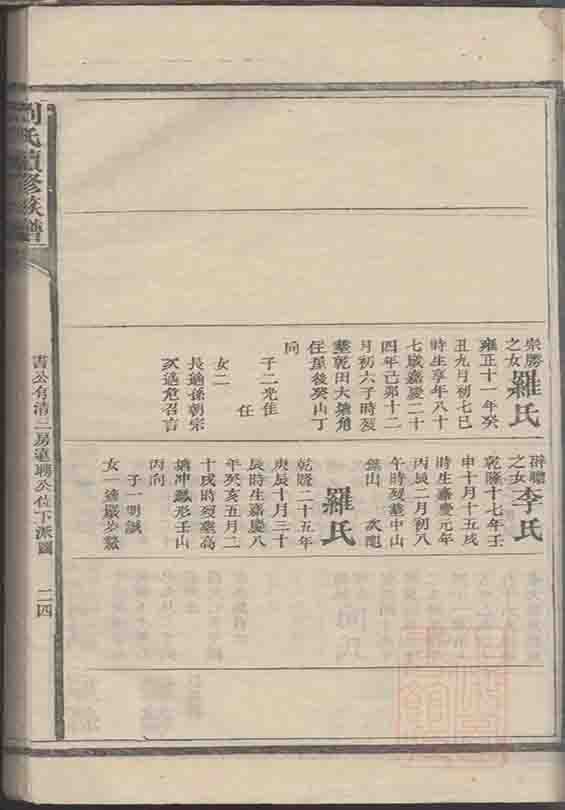 崇勝之女羅氏
雍正十一年癸
丑九月初七巳
時生享年八十
七歲嘉慶二十
四年己卯十二
月初六子時歿
葬乾田大塘角
任屋後癸山丁
向
子二光佳
任
女二
長適孫朝宗
次適危召言
之女李氏
乾隆十七年壬
申十月十五戌
時生嘉慶元年
丙辰二月初八
午時歿葬中山
羅氏
乾隆二十五年
庚辰十月三十
辰時生嘉慶八
年癸亥五月二
十戌時歿葬高
塘冲鳳形壬山
丙向
子一明誠
女一適嚴
劉氏續修族譜
書公有清二房
公位下派圖
二四